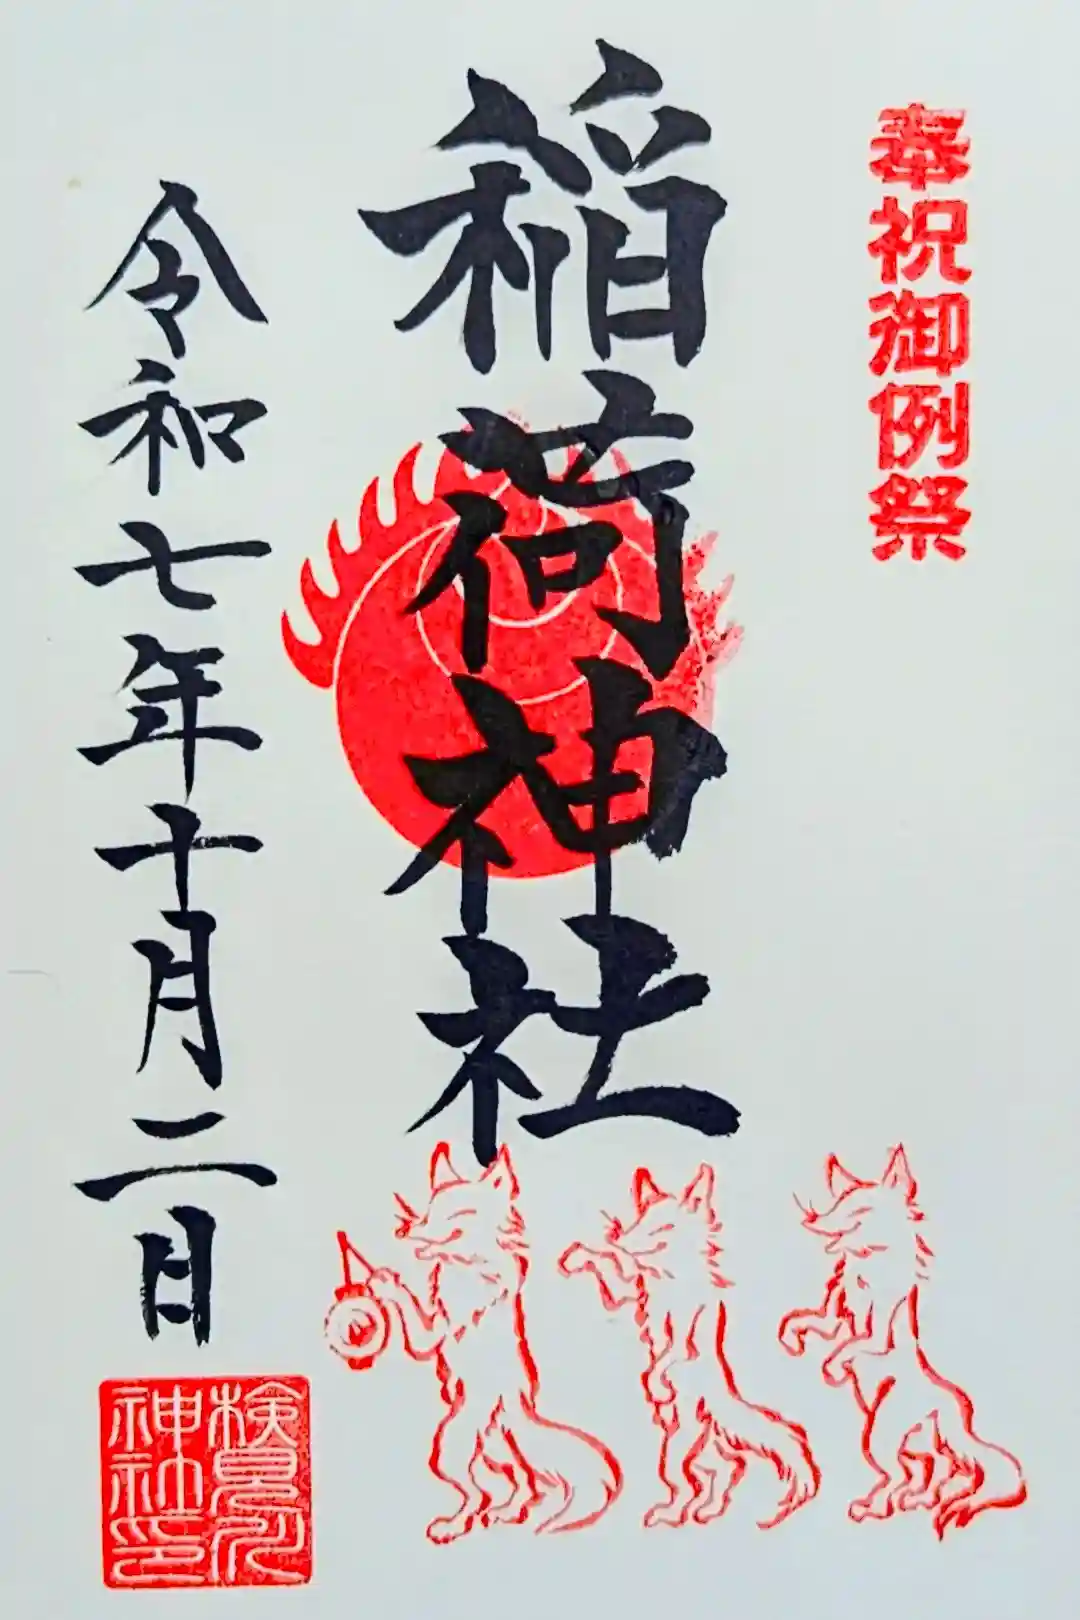 奉祝御例祭
稲荷神社
令和七年十月二日
検見川
神社印